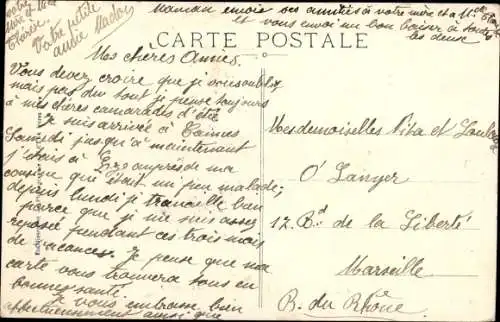 Maman envoie ses amitiés à votre mère et a Mlle
et vous envoi un bon baiser à toutes
les deux
votre
mère et Mlle
Votre petite
amie
CARTE POSTALE
Mes chères Amies.
Vous devez croire que je vous oubliez
mais pas du tout je pense toujours
à mes chères camarades d'été
Je suis arrivée à
Samedi jusqu'à maintenant
j'étais à auprès de ma
cousine qui était un peu malade;
depuis lundi je travaille bien
parce que je me suis assez
reposé pendant ces trois mois
de vacances. Je pense que ma
carte vous trouvera tous en
bonne santé.
Je vous embrasse bien
affectueusement ainsi que
Mesdemoiselles Vita et
O'
12. Bd de la Liberté
Marseille
B. du Rhône.